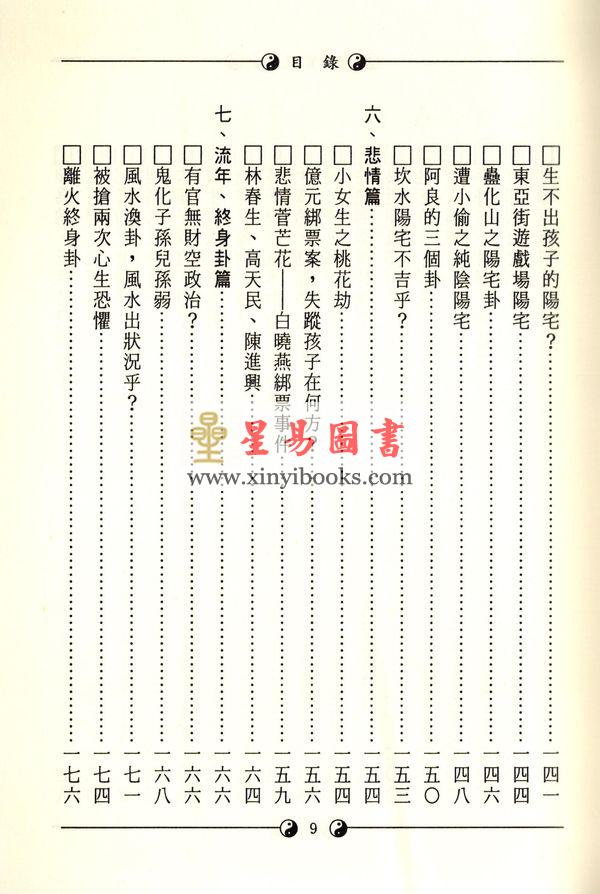 目錄
□生不出孩子的陽宅？……一四一
□東亞街遊戲場陽宅……一四四
□蠱化山之陽宅卦……一四六
□遭小偷之純陰陽宅……一四八
□阿良的三個卦……一五〇
□坎水陽宅不吉乎？……一五三
六、悲情篇……一五四
□小女生之桃花劫……一五四
□億元綁票案，失蹤孩子在何方？……一五六
□悲情菅芒花——白曉燕綁票事件……一五九
□林春生、高天民、陳進興……一六四
七、流年、終身卦篇……一六六
□有官無財空政治？……一六六
□鬼化子孫兒孫弱……一六八
□風水渙卦，風水出狀況乎？……一七一
□被搶兩次心生恐懼……一七四
□離火終身卦……一七六
星易圖書
www.xinyibooks.com
9